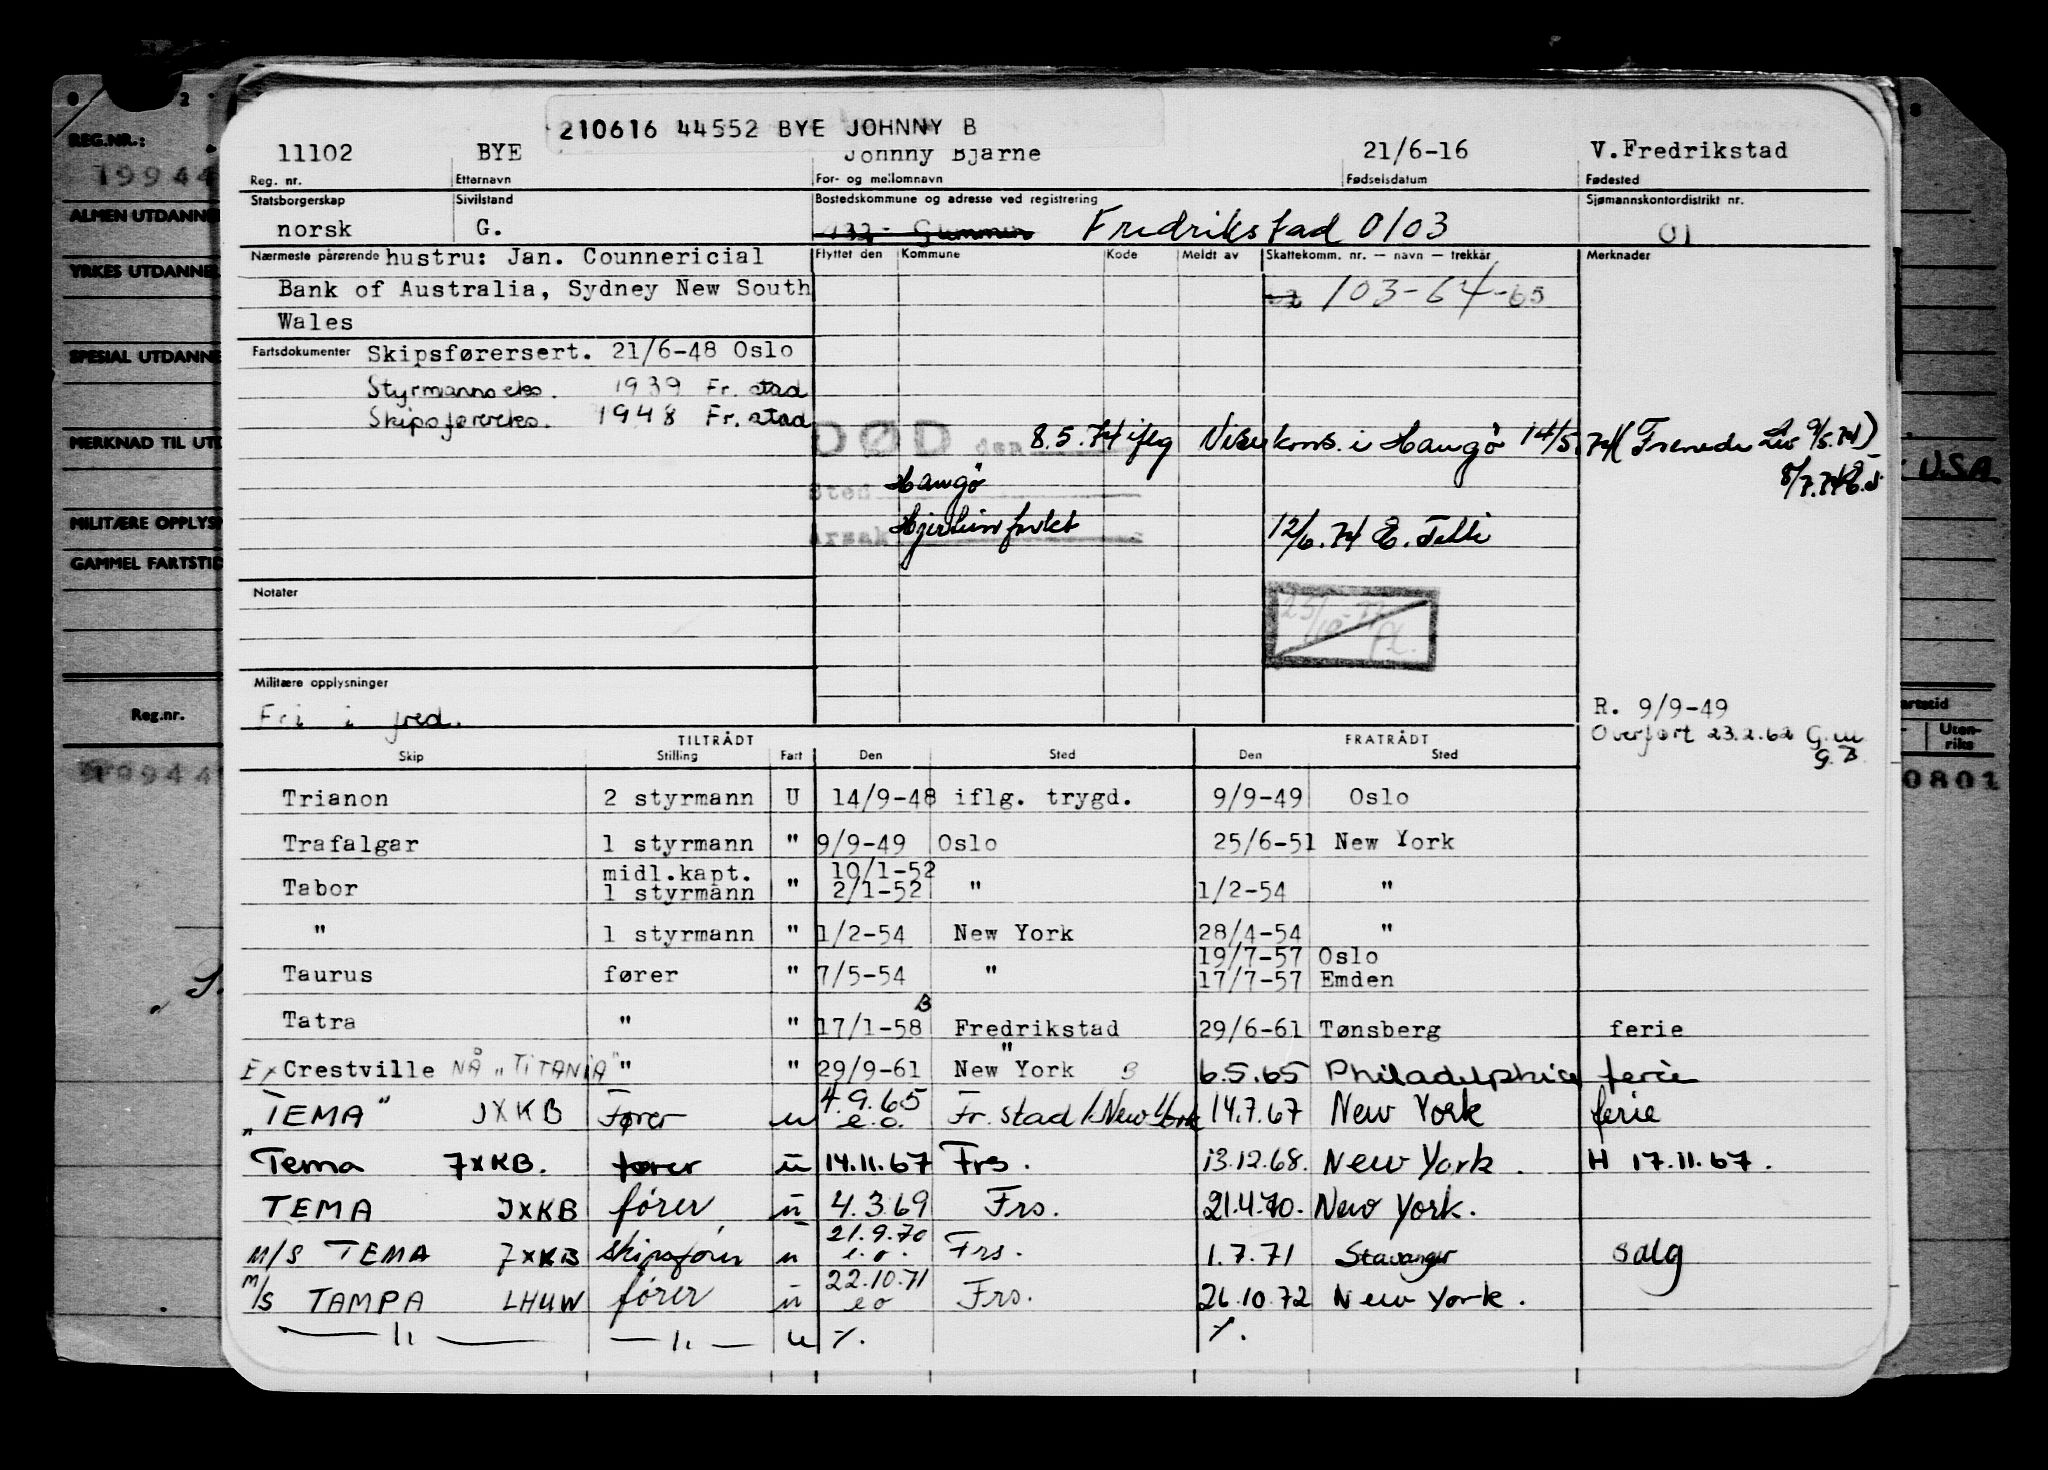 210616 44552 BYE JOHNNY B
11102 BYE Johnny Bjarne 21/6-16 V.Fredrikstad
Reg. nr. Etternavn For- og mellomnavn Fødselsdatum Fødested
Statsborgerskap Sivilstand Bostedskommune og adresse ved registrering Sjømannskontordistrikt nr.
norsk G. Fredrikstad 0103 01
Nærmeste pårørende hustru: Jan. Counnericial Flyttet den Kommune Kode Meldt av Skattekomm. nr. — navn — trekkår Merknader
Bank of Australia, Sydney New South 103-64-65
Wales
Fartsdokumenter Skipsførersert. 21/6-48 Oslo
Styrmannseks. 1939 Fr. stad
Skipsførereks. 1948 Fr. stad
DØD den 8.5.74 iflg Visekons. i Hangö 14/5.74 ( 9/5.74)
Sted Hangö 8/7.74
Årsak 12/6.74 E.
Notater
Militære opplysninger
Fri i fred.
R. 9/9-49
Overført 23.2.62 G.M.
G.B.
TILTRÅDT FRATRÅDT
Skip Stilling Fart Den Sted Den Sted
Trianon 2 styrmann U 14/9-48 iflg. trygd. 9/9-49 Oslo
Trafalgar 1 styrmann " 9/9-49 Oslo 25/6-51 New York
midl.kapt. 10/1-52
Tabor 1 styrmann " 2/1-52 " 1/2-54 "
" 1 styrmann " 1/2-54 New York 28/4-54 "
19/7-57 Oslo
Taurus fører " 7/5-54 " 17/7-57 Emden
B
Tatra " " 17/1-58 Fredrikstad 29/6-61 Tønsberg ferie
"
Ex Crestville NÅ "TITANIA" " " 29/9-61 New York B 6.5.65 Philadelphia ferie
"TEMA" JXKB Fører u 4.9.65 e.o. Fr.stad/New York 14.7.67 New York ferie
Tema JXKB. fører u 14.11.67 Frs. 13.12.68. New York. H 17.11.67.
TEMA JXKB fører u 4.3.69 Frs. 21.4.70. New York.
M/S TEMA JXKB skipsfører u 21.9.70 e.o. Frs. 1.7.71 Stavanger salg
M/S TAMPA LHUW fører u 22.10.71 e o Frs. 26.10.72 New York.
— 1. — — 1. — u %. %.
REG.NR.:
19944
ALMEN UTDANNE
YRKES UTDANNE
SPESIAL UTDANNE
MERKNAD TIL UTD
MILITÆRE OPPLYS
GAMMEL FARTSTID
Reg.nr.
19944
USA
artstid
Uten-
riks
0801